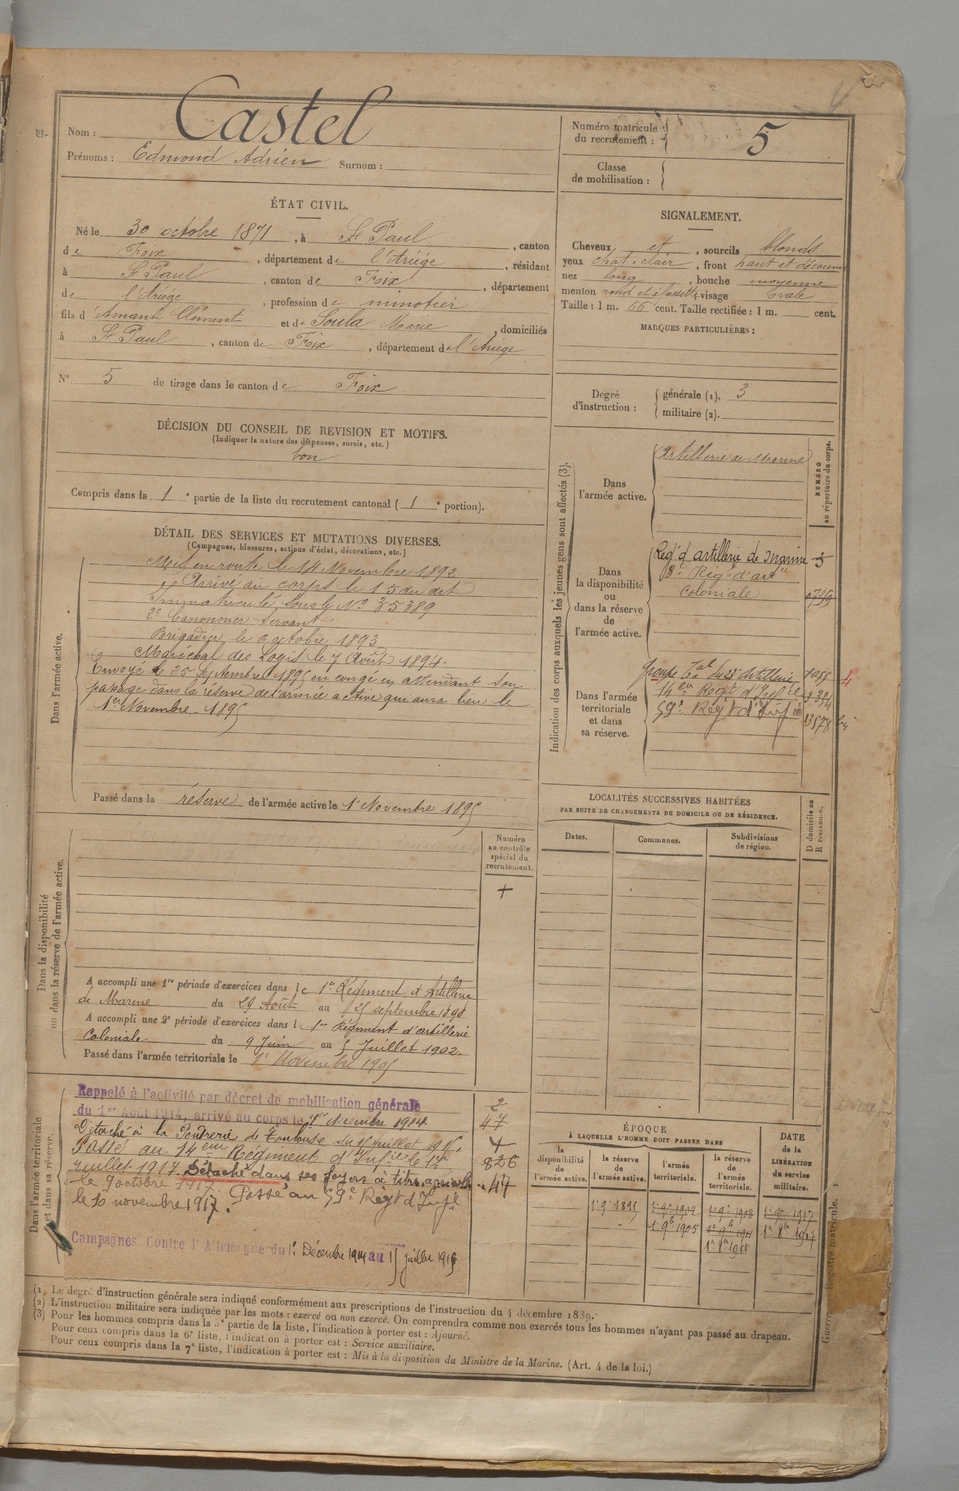 Nom : Castel
Prénoms : Edmond Adrien Surnom :
Numéro matricule du recrutement : 5
Classe de mobilisation :
ÉTAT CIVIL.
Né le 30 octobre 1871, à St Paul, canton
de Foix, département de l'Ariège, résidant
à St Paul, canton de Foix, département
de l'Ariège, profession de minotier
fils d'Amant Clément et de Soula Marie, domiciliés
à St Paul, canton de Foix, département de l'Ariège
N° 5 de tirage dans le canton de Foix
SIGNALEMENT.
Cheveux et, sourcils blonds
yeux chat. clair, front haut et découvert
nez long, bouche moyenne
menton rond et à fossette, visage ovale
Taille : 1 m. 66 cent. Taille rectifiée : 1 m. cent.
MARQUES PARTICULIÈRES :
DÉCISION DU CONSEIL DE REVISION ET MOTIFS.
(Indiquer la nature des dispenses, sursis, etc.)
bon
Compris dans la 1e partie de la liste du recrutement cantonal (1e portion).
Degré d'instruction : générale (1). 3
militaire (2).
DÉTAIL DES SERVICES ET MUTATIONS DIVERSES.
(Campagnes, blessures, actions d'éclat, décorations, etc.)
Dans l'armée active.
Mis en route le 14 Novembre 1892
Arrivé au corps le 15 du dit
Immatriculé sous le N° 85389
2e Canonnier servant
Brigadier le 6 octobre 1893
Maréchal des Logis le 7 Août 1894
Envoyé le 25 septembre 1895 en congé en attendant son
passage dans la réserve de l'armée active qui aura lieu le
1er Novembre 1895
Passé dans la réserve de l'armée active le 1er Novembre 1895
Indication des corps auxquels les jeunes gens sont affectés (3).
NUMÉRO au répertoire du corps.
Dans l'armée active.
Artillerie de Marine
Dans la disponibilité ou dans la réserve de l'armée active.
Regt d'artillerie de marine 5
Regt d'art
Coloniale
Dans l'armée territoriale et dans sa réserve.
Regt d'Infie
59e Regt d'Infie
LOCALITÉS SUCCESSIVES HABITÉES
PAR SUITE DE CHANGEMENTS DE DOMICILE OU DE RÉSIDENCE.
Dates. Communes. Subdivisions de région. D domicile ou R résidence.
Dans la disponibilité ou dans la réserve de l'armée active.
Numéro au contrôle spécial du recrutement.
+
A accompli une 1re période d'exercices dans le 1er Régiment d'Artillerie
de Marine du 29 Août au 25 septembre 1898
A accompli une 2e période d'exercices dans le 1er Régiment d'artillerie
Coloniale du 9 Juin au 5 Juillet 1902.
Passé dans l'armée territoriale le 1er Novembre 1905
Dans l'armée territoriale et dans sa réserve.
Rappelé à l'activité par décret de mobilisation générale
du 1er Août 1914, arrivé au corps le 1er décembre 1914
Détaché à la Poudrerie de Toulouse du 15 juillet 1915.
Passé au 14ème Régiment d'Infie le 1er
juillet 1917. Détaché dans ses foyers à titre agricole
le 9 octobre 1917. Passé au 59e Regt d'Infie
le 10 novembre 1917.
Campagnes Contre l'Allemagne du 1er Décembre 1914 au 15 juillet 1915
2
47
+
826
47
ÉPOQUE
À LAQUELLE L'HOMME DOIT PASSER DANS
la disponibilité de l'armée active. la réserve de l'armée active. l'armée territoriale. la réserve de l'armée territoriale.
DATE de la LIBÉRATION du service militaire.
1er 9bre 1895 1er 9bre 1902 1er 9bre 1908 1er 9bre 1917
1er 9bre 1905 1er 9bre 1911
(1) Le degré d'instruction générale sera indiqué conformément aux prescriptions de l'instruction du 4 décembre 1889.
(2) L'instruction militaire sera indiquée par les mots : exercé ou non exercé. On comprendra comme non exercés tous les hommes n'ayant pas passé au drapeau.
(3) Pour les hommes compris dans la 5e partie de la liste, l'indication à porter est : Ajourné.
Pour ceux compris dans la 6e liste, l'indication à porter est : Service auxiliaire.
Pour ceux compris dans la 7e liste, l'indication à porter est : Mis à la disposition du Ministre de la Marine. (Art. 4 de la loi.)